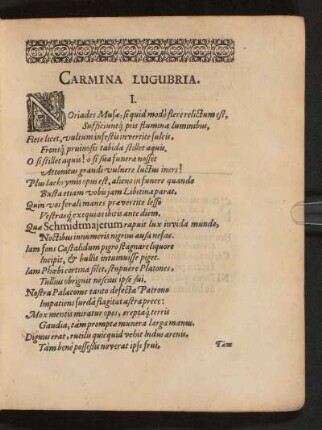 CARMINA LUGUBRIA.
I.
NOriades Musæ, si quid modò flere relictum est,
Sufficiuntq́ piis flumina luminibus,
Flete licet, vultum infestis invertite sulcis,
Frontiq́ pruinosis tabida stillet aquis,
O si stillet aquis! ô si sua funera nosset
Attonitus grandi vulnere luctus iners!
Plus lachrymis opus est, alieno in funere quando
Busta etiam vobis jam Libitina parat.
Quin vos ferali manes prævertite lesso
Vestrasq́ exequias ibitis ante diem.
Quæ Schmidtmajerum rapuit lux invida mundo,
Noctibus innumeris nigrior ausa nefas.
Iam fons Castalidum pigro stagnare liquore
Incipit, & bulliit intumuisse piget.
Iam Phœbi cortina silet, stupuere Platones,
Tullius obriguit nescius ipse sui,
Nostra Palæmonis tanto defecta Patrono
Impatiens surdâ flagitat astra prece:
Mox mentis miratur opes, ereptaq́ terris
Gaudia, tàm prompta munera larga manus.
Dignus erat, rutili quicquid vehit Indus arenis,
Tàm benè possessis noverat ipse frui,
Tàm